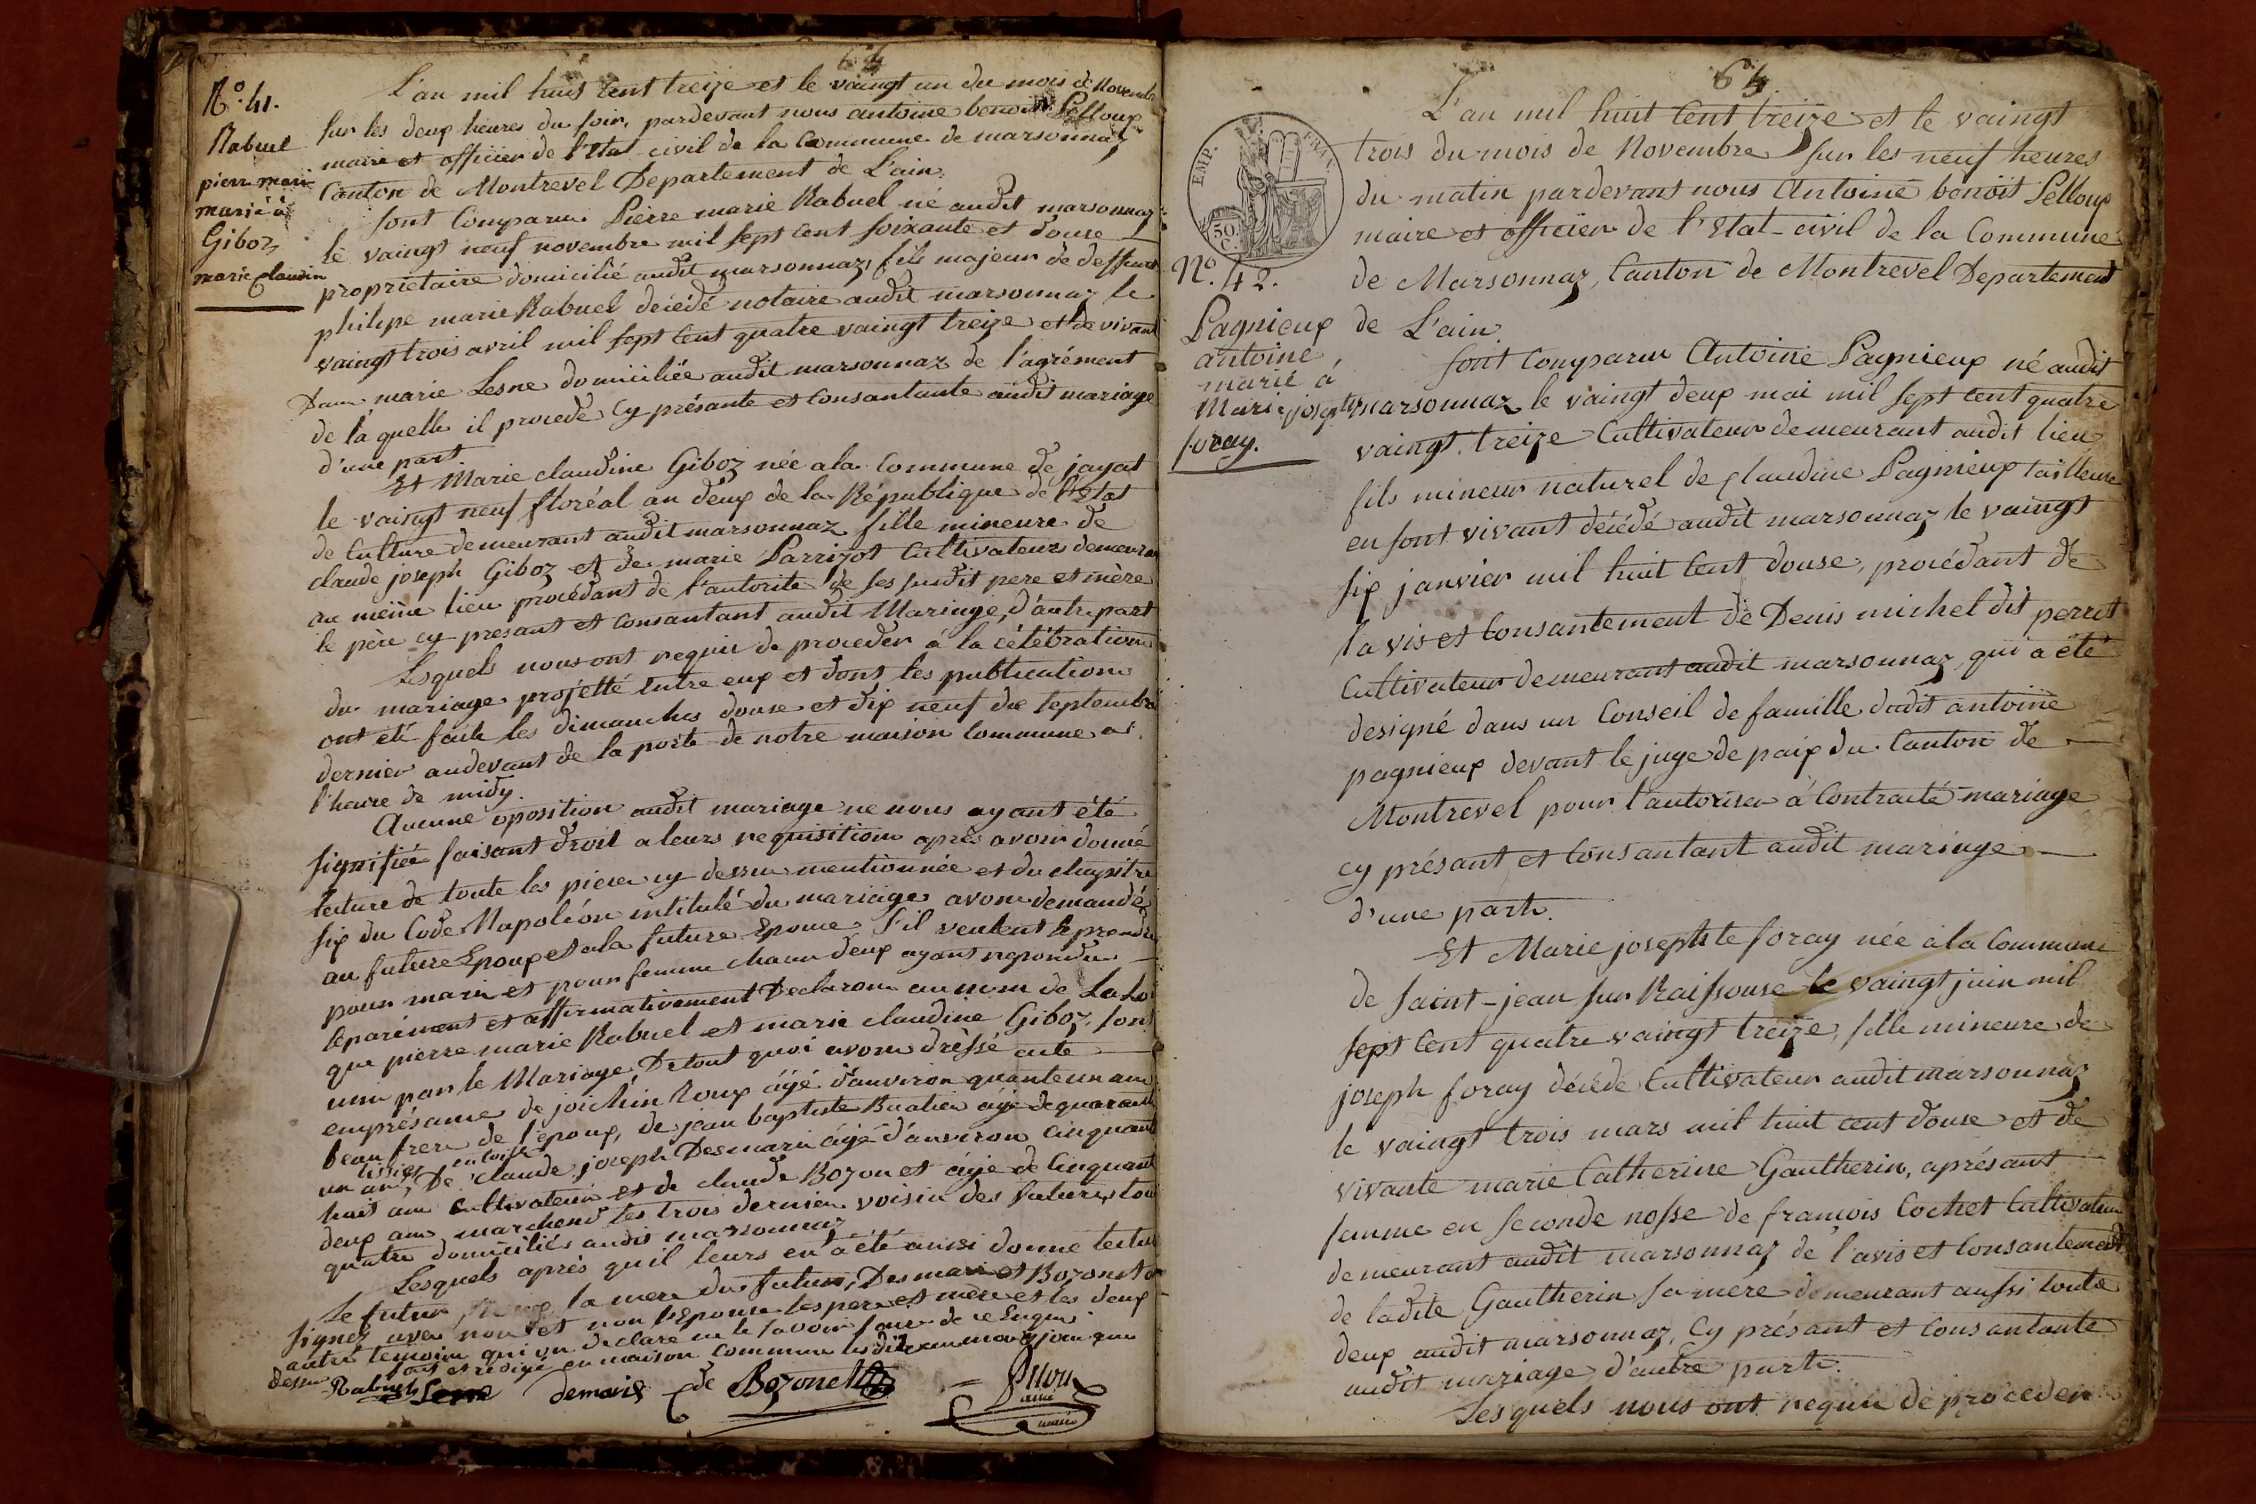 64
N.° 41.
Rabuel
pierre marie
marié à
Giboz
marie Claudine
L'an mil huit Cent treize et le vaingt un du mois de Novembre
sur les deux heures du soir, pardevant nous antoine benoit Pelloux
maire et officier de l'Etat civil de la Commune de marsonnaz
Canton de Montrevel Departement de L'ain.
sont Comparu Pierre marie Rabuel né audit marsonnaz
le vaingt neuf novembre mil sept Cent soixante et douse
proprietaire domicilié audit marsonnaz, fils majeur de deffunt
philipe marie Rabuel décédé notaire audit marsonnaz le
vaingt trois avril mil sept Cent quatre vaingt treize et de vivante
Dame marie Lesne domiciliée audit marsonnaz de l'agrément
de laquelle il procede Cy présante et Consantante audit mariage
d'une part
Et Marie claudine Giboz née a la Commune de jayat
le vaingt neuf floréal an deux de la République de l'Etat
de Culture demeurant audit marsonnaz fille mineure de
claude joseph Giboz et de marie Parrizot Cultivateurs demeurant
au même lieu procédant de l'autorite de ses susdit pere et mère
le père cy presant et Consantant audit Mariage, d'autre part
Lesquels nous ont requis de proceder à la célébration
du mariage projetté entre eux et dont les publications
ont été faite les dimanches douse et dix neuf du septembre
dernier audevant de la porte de notre maison Commune a
l'heure de midy.
Aucune oposition audit mariage ne nous ayant été
signifiée faisant droit a leurs requisition après avoir donné
lecture de toute les pieces cy dessus mentionnée et du chapitre
six du Code Napoléon intitulé du mariage avons demandé
au future Epoux et a la future Epouse s'il veulent se prendre
pour mari et pour femme chacun d'eux ayant repondu
separément et affirmativement Declarons au nom de La Loi
que pierre marie Rabuel et marie claudine Giboz sont
unis par le Mariage De tout quoi avons dréssé acte
en présance de joichin Roux âgé d'anviron quarante un ans
beau frere de l'époux, de jean baptiste Buatier âgé de quarante
un ans, De Claude joseph Desmaris âgé d'anviron Cinquante
huit ans Cultivateur et de claude Bozonet âgé de Cinquante
deux ans marchend les trois dernier voisin des futures, tou
quatre domiciliés audit marsonnaz
Lesquels après qu'il leurs en a été aussi donné lecture
Le futur, la mere du futur, Desmaris et Bozonet ont
signez avec nous et non l'Epouse les pere et mere et les deux
autre temoins qui on declare ne le savoir faire de ce Enquis
fait et rédigé en maison Commune lesdit jour que
dessus
Rabuel Lesne demaris C de Bozonet Pelloux
maire
64
EMP. FRAN.
50.
C.
N.° 42.
Pagnieux
antoine
marié à
Marie josephte
foray.
L'an mil huit Cent treize et le vaingt
trois du mois de Novembre sur les neuf heures
du matin pardevant nous Antoine benoit Pelloux
maire et officier de l'Etat-civil de la Commune
de Marsonnaz, Canton de Montrevel Departement
de L'ain.
sont Comparu Antoine Pagnieux né audit
marsonnaz le vaingt deux mai mil sept cent quatre
vaingt treize Cultivateur demeurant audit lieu
fils mineur naturel de claudine Pagnieux tailleuse
en sont vivant décédé audit marsonnaz le vaingt
six janvier mil huit Cent douse, procédant de
l'avis et Consantement de Denis michel dit perret
Cultivateur demeurant audit marsonnaz, qui a été
designé dans un Conseil de famille dudit antoine
pagnieux devant le juge de paix du Canton de
Montrevel pour l'autoriser à Contracté mariage
cy présant et Consantant audit mariage
d'une part.
Et Marie josephte foray née à la Commune
de saint-jean sur Raissouse le vaingt juin mil
sept Cent quatre vaingt treize, fille mineure de
joseph foray décédé Cultivateur audit marsonnaz
le vaingt trois mars mil huit cent douse et de
vivante marie Catherine Gautherin, aprésant
famme en seconde nosse de francois Cochet Cultivateur
demeurant audit marsonnaz de l'avis et Consantement
de ladite Gautherin sa mere demeurant aussi toute
deux audit marsonnaz, Cy présant et Consantante
audit mariage d'autre part.
Lesquels nous ont requis de proceder